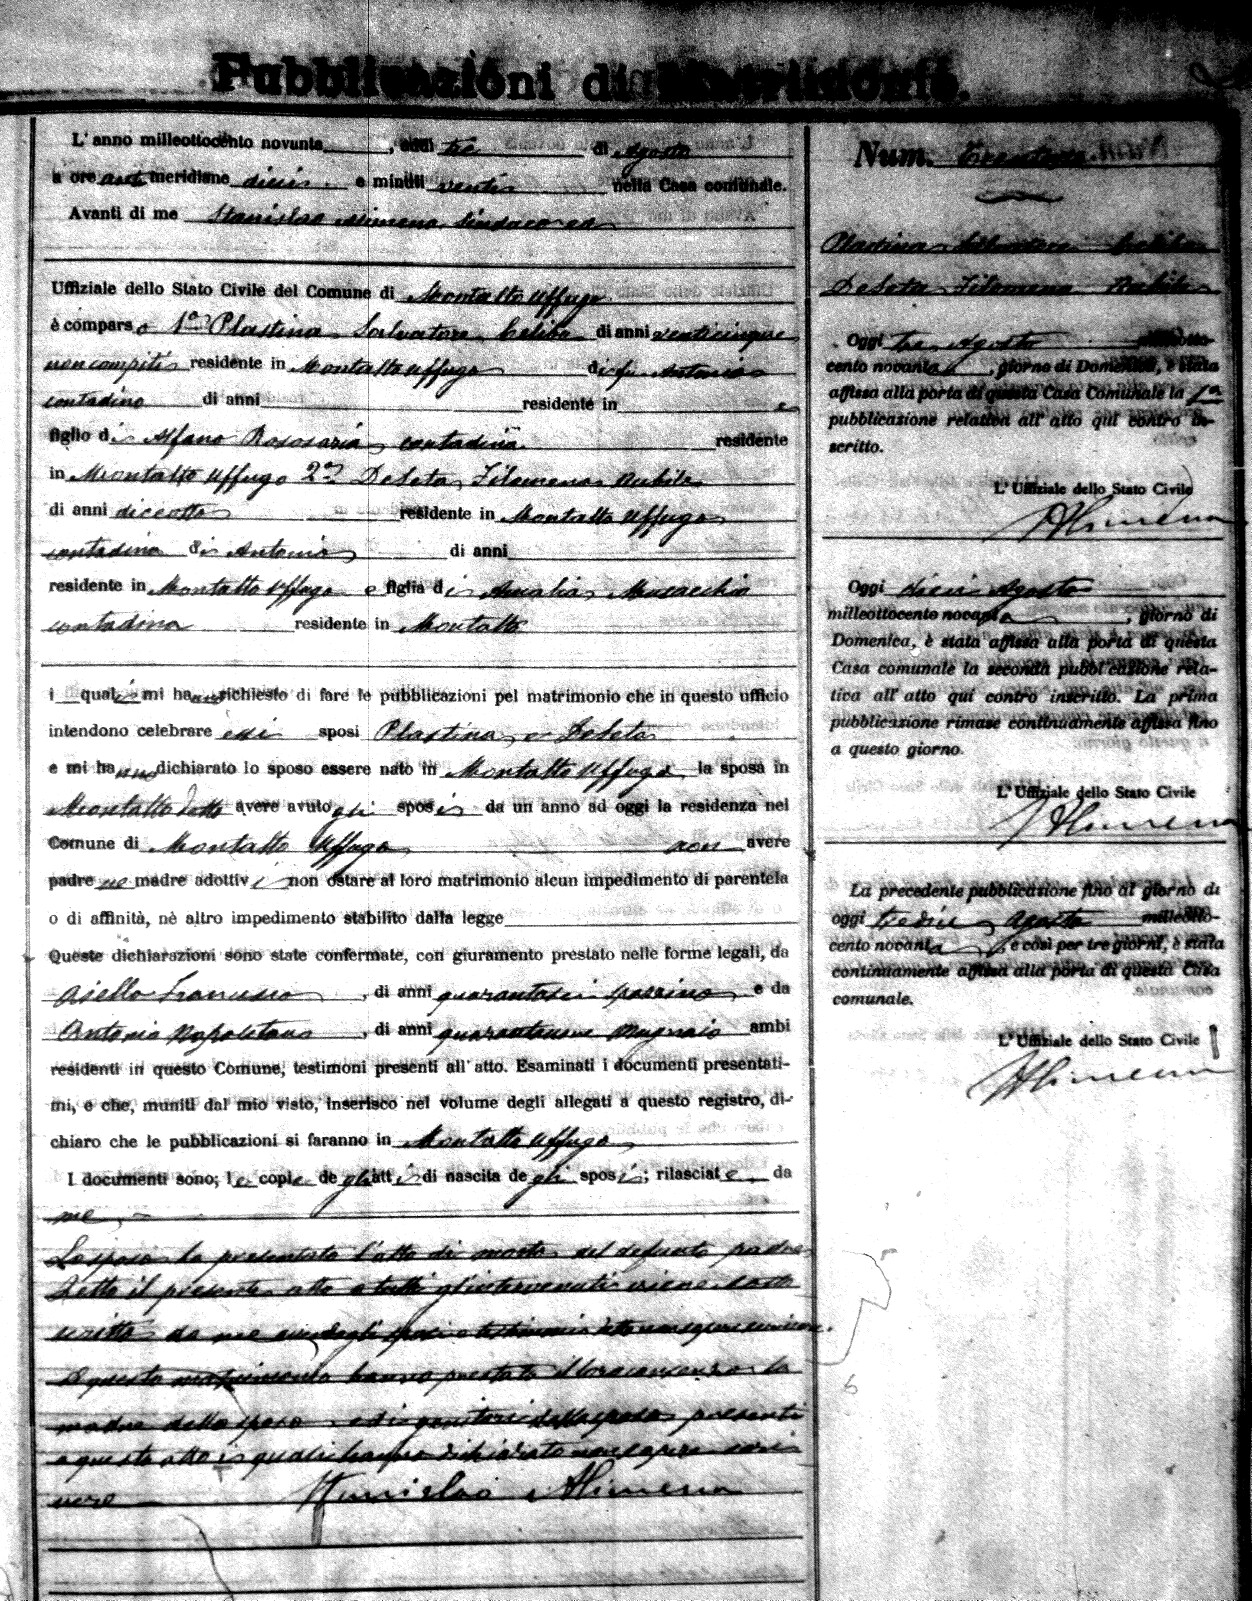 Pubblicazioni di Matrimonio.
L'anno milleottocento novanta, addì tre di Agosto
a ore antimeridiane dieci e minuti venti nella Casa comunale.
Avanti di me Stanislao Alimena Sindaco ed
Uffiziale dello Stato Civile del Comune di Montalto Uffugo
è comparso 1° Plastina Salvatore Celibe di anni venticinque
non compiti residente in Montalto Uffugo di fu Antonio
contadino di anni residente in e
figlio di Alfano Rosaria contadina residente
in Montalto Uffugo 2° DeSeta Filomena Nubile
di anni diciotto residente in Montalto Uffugo
contadina di Antonio di anni
residente in Montalto Uffugo e figlia di Amalia Musacchio
contadina residente in Montalto
i quali mi hanno richiesto di fare le pubblicazioni pel matrimonio che in questo ufficio
intendono celebrare essi sposi Plastina e DeSeta
e mi hanno dichiarato lo sposo essere nato in Montalto Uffugo la sposa in
Montalto detto avere avuto gli sposi da un anno ad oggi la residenza nel
Comune di Montalto Uffugo non avere
padre nè madre adottivi non ostare al loro matrimonio alcun impedimento di parentela
o di affinità, nè altro impedimento stabilito dalla legge
Queste dichiarazioni sono state confermate, con giuramento prestato nelle forme legali, da
Aiello Francesco, di anni quarantasei e da
Antonio Napoletano, di anni quarantanove Mugnaio ambi
residenti in questo Comune, testimoni presenti all'atto. Esaminati i documenti presentati-
mi, e che, muniti dal mio visto, inserisco nel volume degli allegati a questo registro, di-
chiaro che le pubblicazioni si faranno in Montalto Uffugo
I documenti sono; le copie degli atti di nascita degli sposi; rilasciate da
me
Lo sposo ha presentato l'atto di morte del defunto padre
Letto il presente atto a tutti gl'intervenuti viene sotto
scritto da me avendo gli sposi e testimoni detto non sapere scrivere.
A questo matrimonio hanno prestato il loro consenso la
madre dello sposo ed i genitori della sposa presenti
a questo atto i quali hanno dichiarato non sapere scri
vere Stanislao Alimena
Num. Trentuno.
Plastina Salvatore Celibe
DeSeta Filomena Nubile
Oggi tre Agosto milleotto-
cento novanta, giorno di Domenica, è stata
affissa alla porta di questa Casa Comunale la 1a
pubblicazione relativa all'atto qui contro in-
scritto.
L'Uffiziale dello Stato Civile
SAlimena
Oggi dieci Agosto
milleottocento novanta, giorno di
Domenica, è stata affissa alla porta di questa
Casa comunale la seconda pubblicazione rela-
tiva all'atto qui contro inscritto. La prima
pubblicazione rimase continuamente affissa fino
a questo giorno.
L'Uffiziale dello Stato Civile
SAlimena
La precedente pubblicazione fino al giorno di
oggi tredici Agosto milleotto-
cento novanta, e così per tre giorni, è stata
continuamente affissa alla porta di questa Casa
comunale.
L'Uffiziale dello Stato Civile
SAlimena